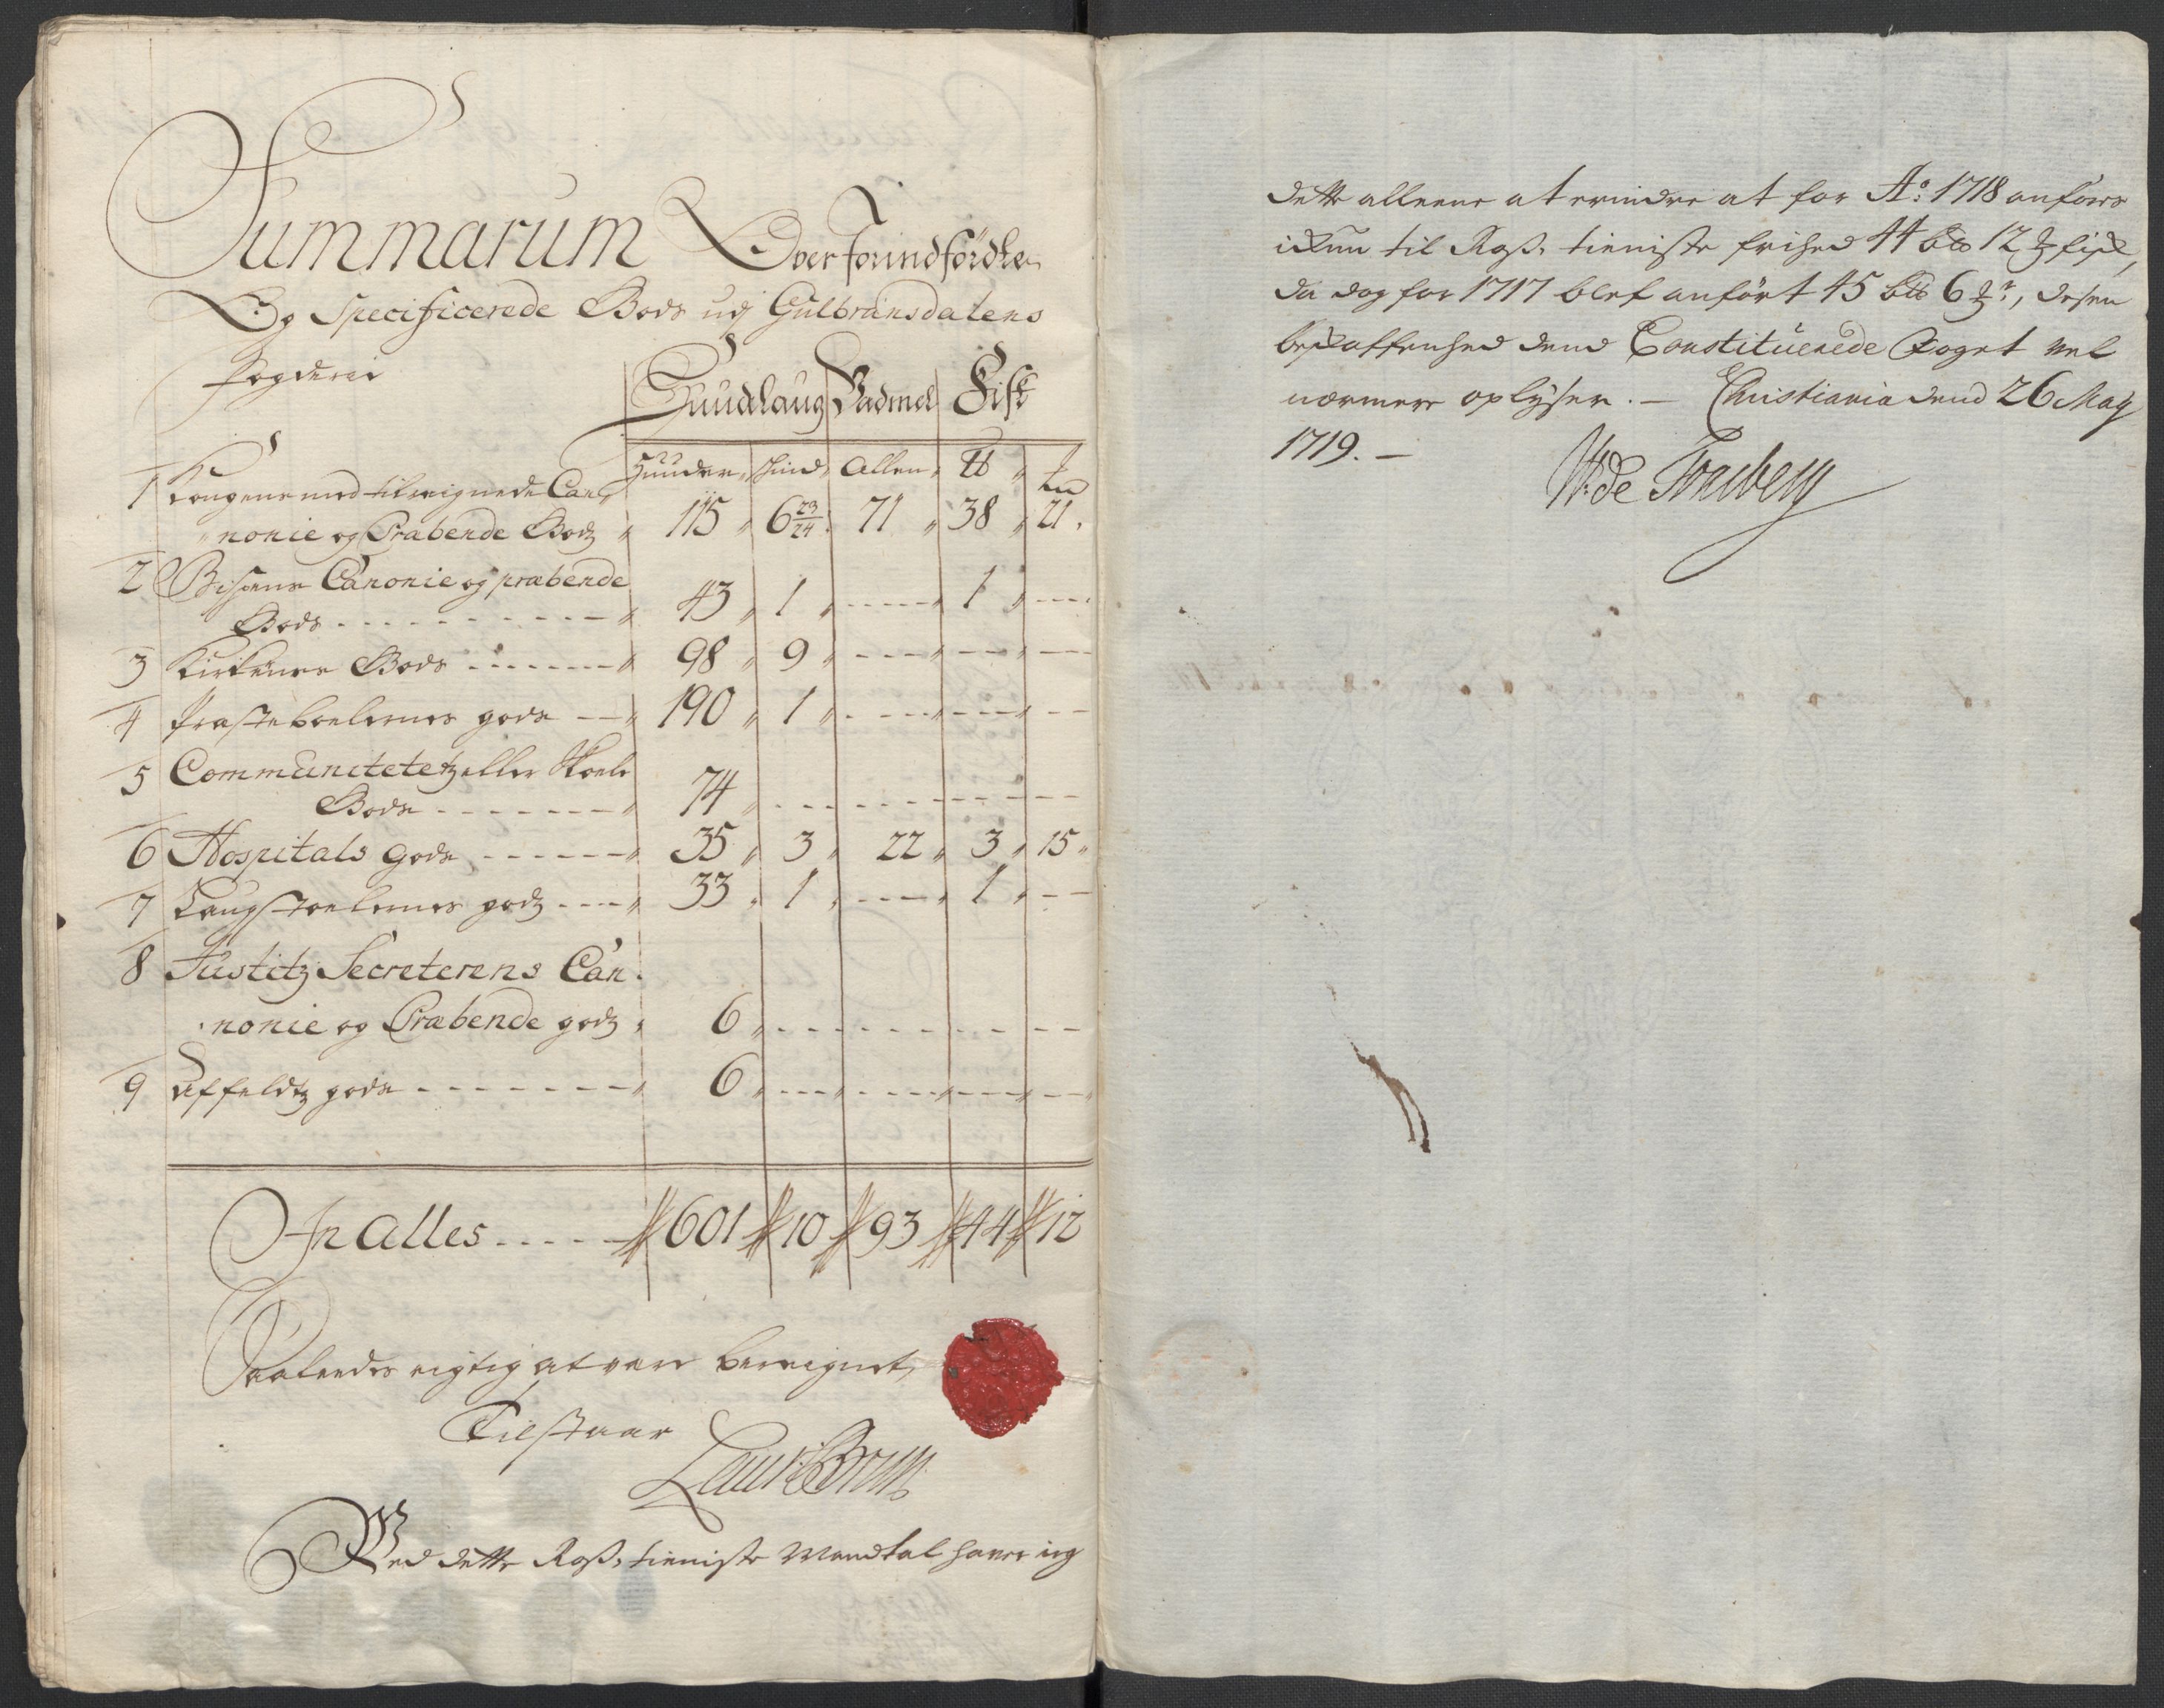 Summarum Over Forindførdte
Og Specificerede Gods udj Gulbransdalens
fogderie
Huudlaug Vadmel Fisk
Huuder Skind Allen ℔
1 Kongens med tilegnede Can
nonie og Præbende Godtz 115 6 23/24 71 38 21
2 Bispens Canonie og præbende
Gods - - - 43 1 - - - 1 - - -
3 Kirkernes Gods - - - 98 9 - - -
4 Præsteboelernes gods - - 190 1 - - -
5 Communitetetz eller Skole
Gods - - - 74 - - -
6 Hospitals Gods - - - 35 3 22 3 15
7 Laugstoelernes godtz - - - 33 1 - - - 1 - -
8 Justitz Secreterens Can
nonie og Præbende godtz 6 - - -
9 Uffeldtz gods - - - 6 - - -
In Alles - - - 601 10 93 44 12
Saaledes rigtig at være beregnet,
Tilstaar
Laur: Brun
Ved dette Ross tieniste Mandtal haver ieg
dette alleene at erindre at for Aº: 1718 anføres
ickun til Ross tieniste frihed 44 12 fisk,
da dog for 1717 blef anført 45 6, desen
beskaffenhed dend Constituerede Foget vel
nærmere oplyser. – Christiania dend 26 May
1719. –
W: de